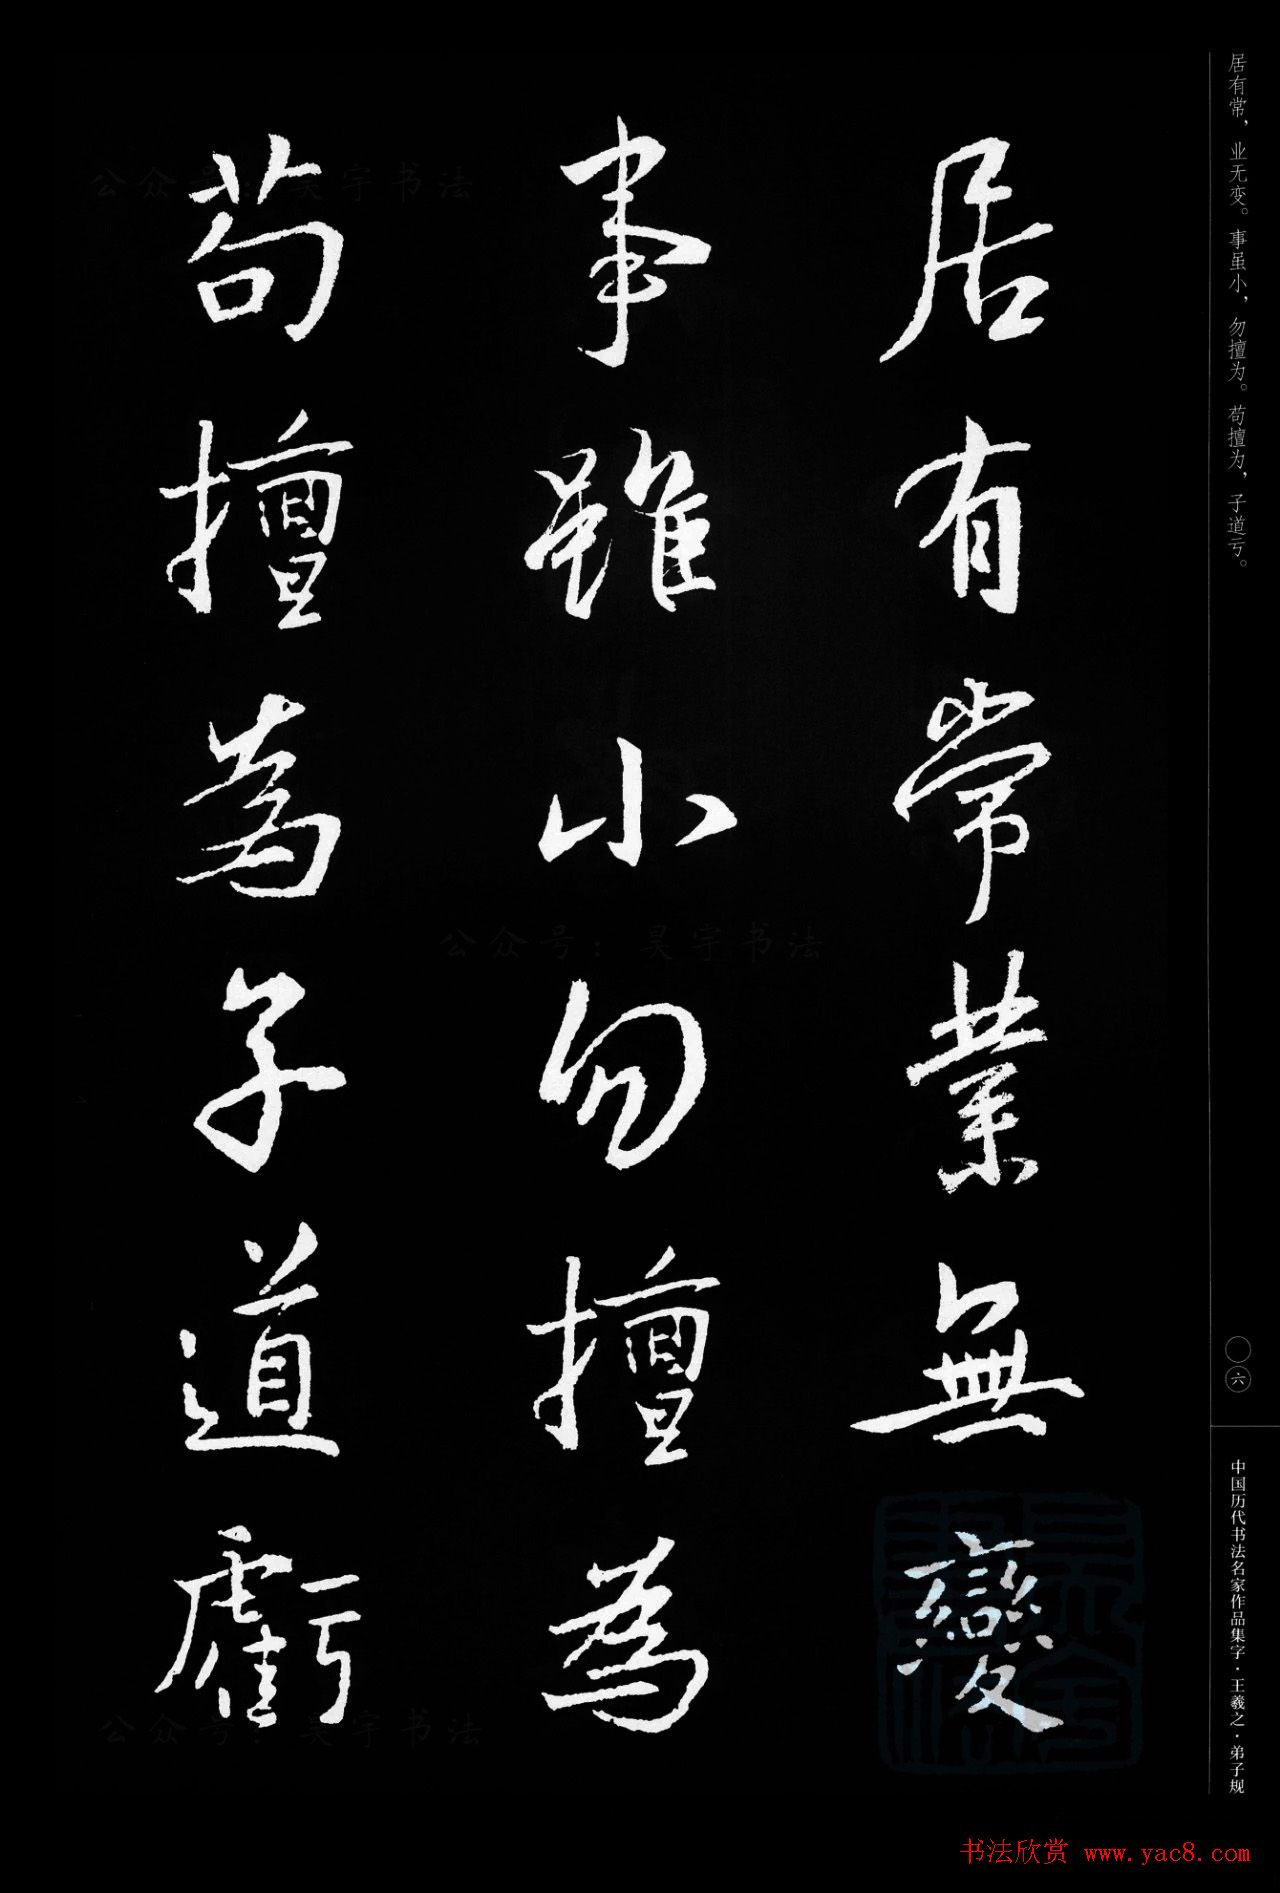 居有常，业无变。事虽小，勿擅为。苟擅为，子道亏。
居有常業無變
事雖小勿擅為
苟擅為子道虧
〇六
中国历代书法名家作品集字·王羲之·弟子规
公众号：昊宇书法
公众号：昊宇书法
公众号：昊宇书法
书法欣赏 www.yac8.com